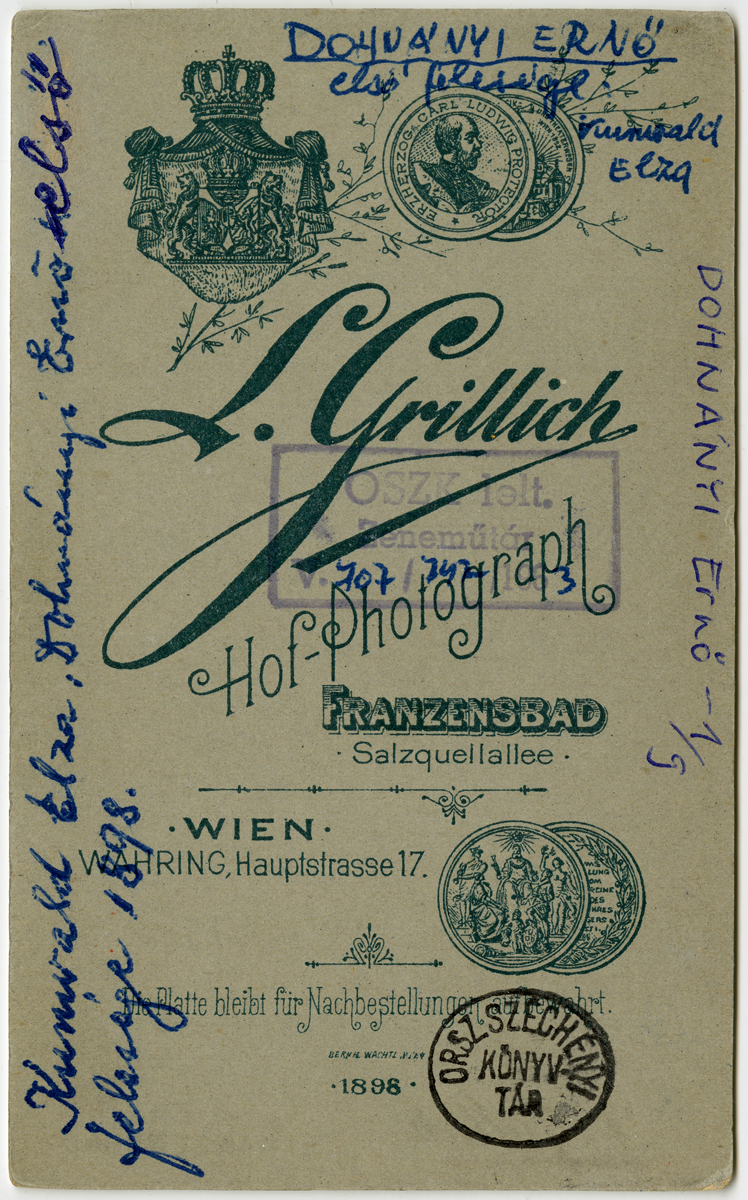 DOHNÁNYI ERNŐ
első felesége.
Kunwald
Elza
ERZHERZOG CARL LUDWIG PROTECTOR
L. Grillich
Hof-Photograph
FRANZENSBAD
· Salzquellallee ·
OSZK lelt.
Zeneműtár
V. 707 / 742 198 3
· WIEN ·
WÄHRING, Hauptstrasse 17.
Die Platte bleibt für Nachbestellungen aufbewahrt.
BERNH. WACHTL
· 1898 ·
ORSZ SZÉCHÉNYI
KÖNYV-
TÁR
Kunwald Elza, Dohnányi Ernő első
felesége 1898.
DOHNÁNYI ERNŐ – 1/9